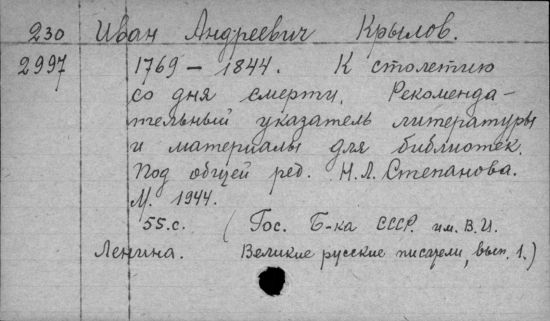 230 Иван Андреевич Крылов.
2997 1769 – 1844. К столетию
со дня смерти. Рекоменда-
тельный указатель литературы
и материалы для библиотек.
Под общей ред. Н.Л. Степанова.
М. 1944.
55.с. (Гос. Б-ка СССР. им. В.И.
Ленина. Великие русские писатели, вып. 1.)